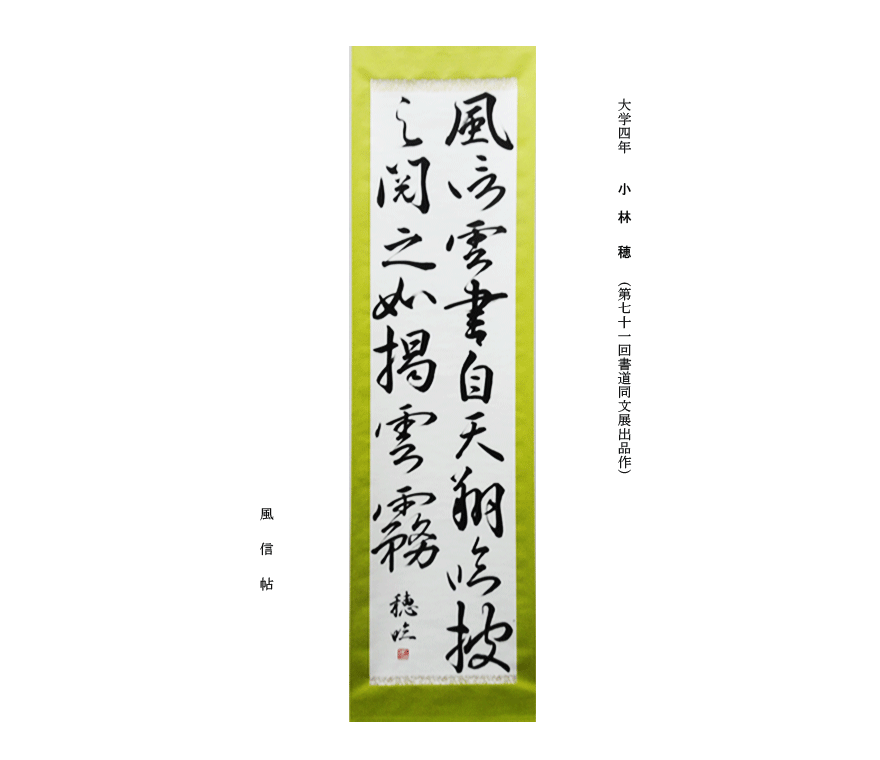 大学四年　小林　穂　（第七十一回書道同文展出品作）
風信雲書自天翔臨披
之閲之如揭雲霧
穂臨
風信帖